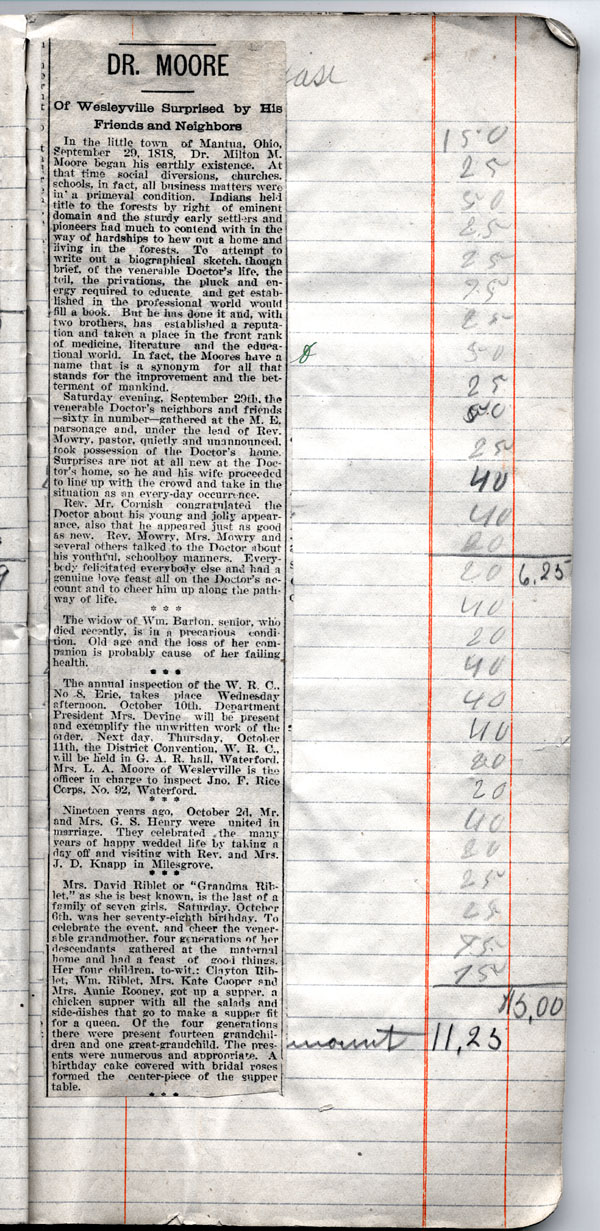 DR. MOORE
Of Wesleyville Surprised by His
Friends and Neighbors
In the little town of Mantua, Ohio,
September 29, 1818, Dr. Milton M.
Moore began his earthly existence. At
that time social diversions, churches,
schools, in fact, all business matters were
in a primeval condition. Indians held
title to the forests by right of eminent
domain and the sturdy early settlers and
pioneers had much to contend with in the
way of hardships to hew out a home and
living in the forests. To attempt to
write out a biographical sketch, though
brief, of the venerable Doctor's life, the
toil, the privations, the pluck and en-
ergy required to educate and get estab-
lished in the professional world would
fill a book. But he has done it and, with
two brothers, has established a reputa-
tion and taken a place in the front rank
of medicine, literature and the educa-
tional world. In fact, the Moores have a
name that is a synonym for all that
stands for the improvement and the bet-
terment of mankind.
Saturday evening, September 29th, the
venerable Doctor's neighbors and friends
—sixty in number—gathered at the M. E.
parsonage and, under the lead of Rev.
Mowry, pastor, quietly and unannounced,
took possession of the Doctor's home.
Surprises are not at all new at the Doc-
tor's home, so he and his wife proceeded
to line up with the crowd and take in the
situation as an every-day occurrence.
Rev. Mr. Cornish congratulated the
Doctor about his young and jolly appear-
ance, also that he appeared just as good
as new. Rev. Mowry, Mrs. Mowry and
several others talked to the Doctor about
his youthful, schoolboy manners. Every-
body felicitated everybody else and had a
genuine love feast all on the Doctor's ac-
count and to cheer him up along the path-
way of life.
* * *
The widow of Wm. Barton, senior, who
died recently, is in a precarious condi-
tion. Old age and the loss of her com-
panion is probably cause of her failing
health.
* * *
The annual inspection of the W. R. C.,
No 8, Erie, takes place Wednesday
afternoon, October 10th. Department
President Mrs. Devine will be present
and exemplify the unwritten work of the
order. Next day, Thursday, October
11th, the District Convention, W. R. C.,
will be held in G. A. R. hall, Waterford.
Mrs. L. A. Moore of Weslerville is the
officer in charge to inspect Jno. F. Rice
Corps, No. 92, Waterford.
* * *
Nineteen years ago, October 2d, Mr.
and Mrs. G. S. Henry were united in
marriage. They celebrated the many
years of happy wedded life by taking a
day off and visiting with Rev. and Mrs.
J. D. Knapp in Milesgrove.
* * *
Mrs. David Riblet or "Grandma Rib-
let," as she is best known, is the last of a
family of seven girls. Saturday, October
6th, was her seventy-eighth birthday. To
celebrate the event, and cheer the vener-
able grandmother, four generations of her
descendants gathered at the maternal
home and had a feast of good things.
Her four children, to-wit.: Clayton Rib-
let, Wm. Riblet, Mrs. Kate Cooper and
Mrs. Annie Rooney, got up a supper, a
chicken supper with all the salads and
side-dishes that go to make a supper fit
for a queen. Of the four generations
there were present fourteen grandchil-
dren and one great-grandchild. The pres-
ents were numerous and appropriate. A
birthday cake covered with bridal roses
formed the center-piece of the supper
table.
* * *
150
25
50
25
25
75
25
50
25
50
25
40
40
20
20 6,25
40
20
40
40
40
20
20
40
20
25
25
75
75
$5,00
mount 11,25